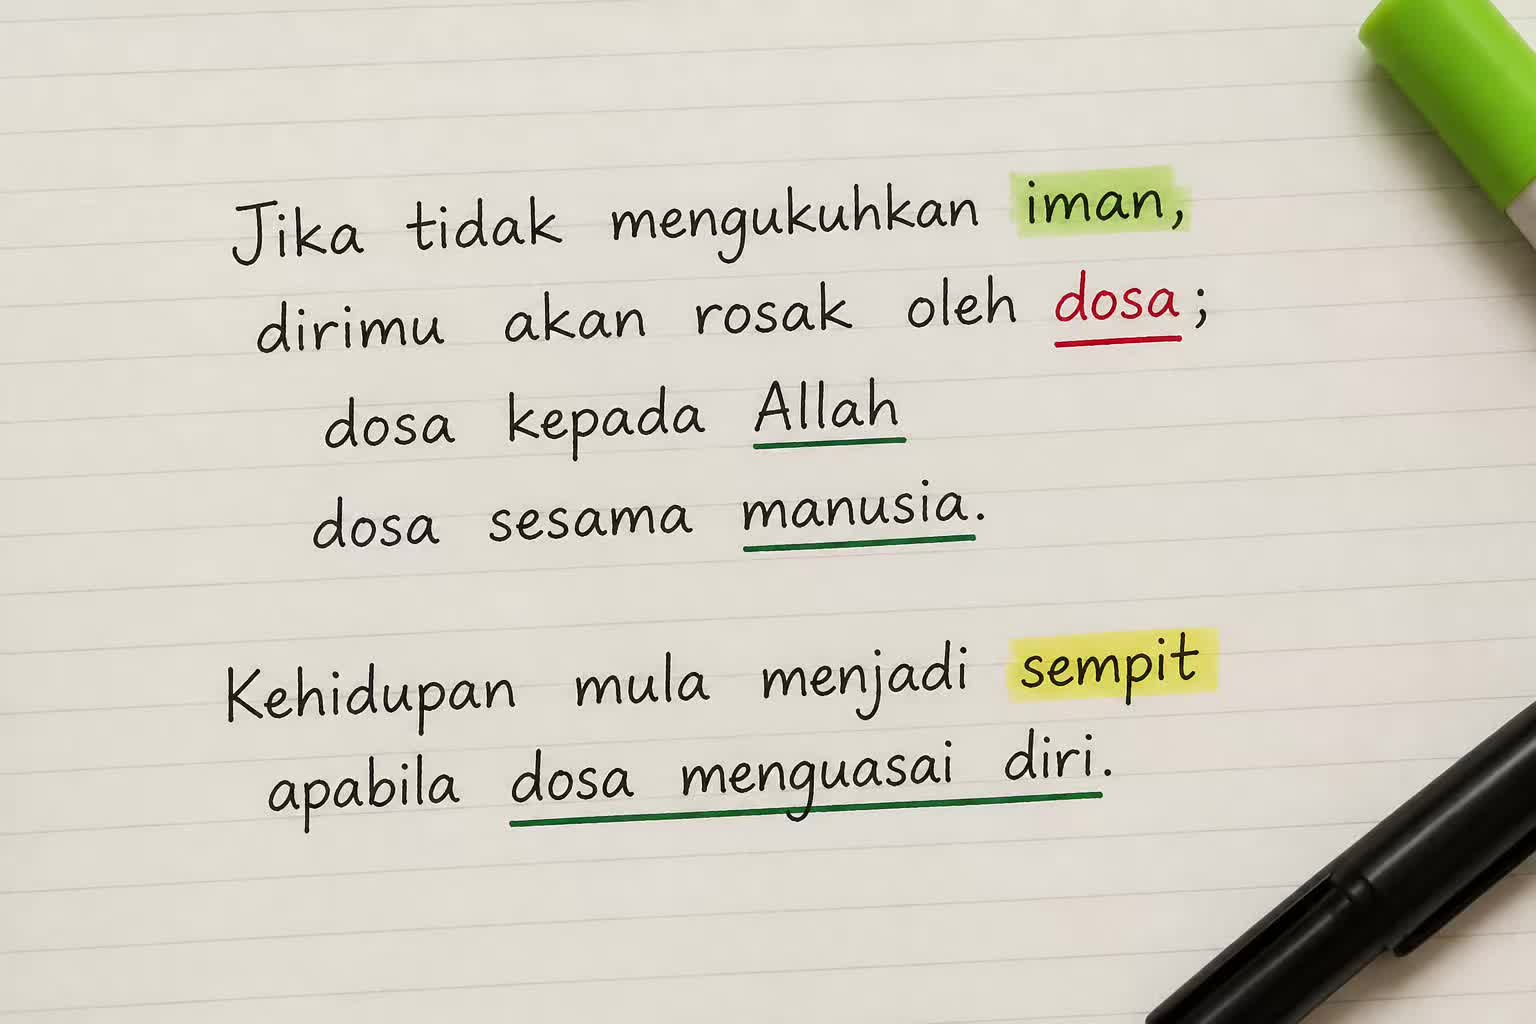 Jika tidak mengukuhkan iman,
dirimu akan rosak oleh dosa;
dosa kepada Allah
dosa sesama manusia.
Kehidupan mula menjadi sempit
apabila dosa menguasai diri.